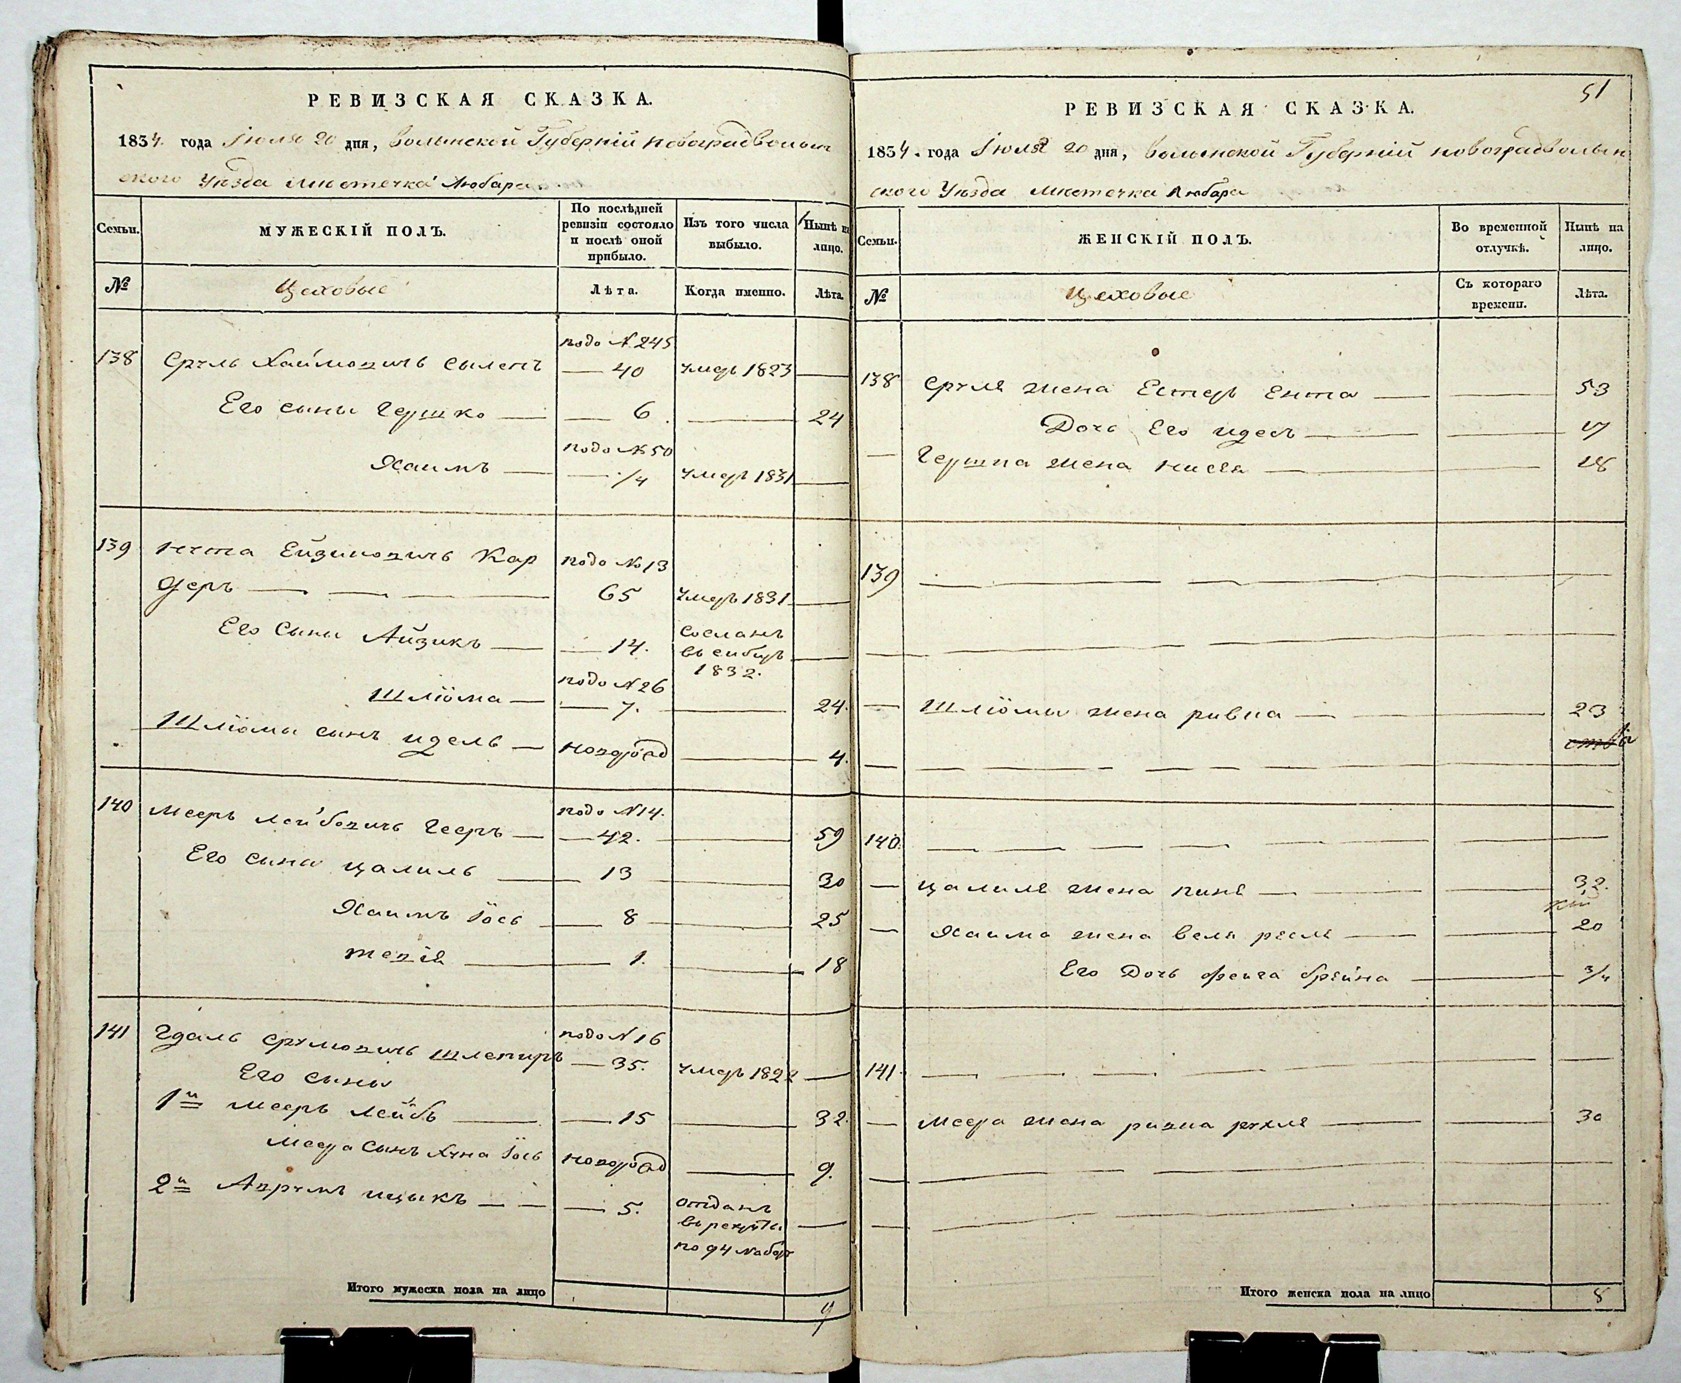 РЕВИЗСКАЯ СКАЗКА.
1834. года Іюля 20 дня, Волынской Губерній Новоградволын
ского Уѣзда мѣстечка Любара
Семьи.
МУЖЕСКІЙ ПОЛЪ.
По послѣдней ревизіи состояло и послѣ оной прибыло.
Изъ того числа выбыло.
Нынѣ на лицо.
№
Цеховые
Лѣта.
Когда именно.
Лѣта.
подо № 245
138 Сруль Хаймовичь Сыленъ — 40 умеръ 1823 —
Его сыны Гершко — 6 — 24
подо № 50
Хаимъ — 1/4 умеръ 1831 —
139 Нута Ейзиковичь Кар подо № 13
деръ — 65 умеръ 1831 —
Его Сыны Айзикъ — 14. Сосланъ
въ сибирь
1832.
подо № 26
Шліома — 7. — 24.
Шліомы сынъ идель — новород — 4.
140 Мееръ Лейбовичь Гееръ — подо № 14.
— 42. — 59
Его сыны Цалиль — 13 — 30
Хаимъ Іось — 8 — 25
тевія — 1. — 18
141 Гдаль Срулиовичь подо № 16
— 35. умеръ 1822 —
Его сыны
1й Мееръ Лейбъ — 15 — 32.
Меера Сынъ Хуна Іось новород — 9.
2й Аврумъ ицыкъ — 5. отданъ
въ рекруты
по 94 набору
Итого мужеска пола на лицо 9
51
РЕВИЗСКАЯ СКАЗКА.
1834. года Іюля 20 дня, Волынской Губерній Новоградволын
ского Уѣзда мѣстечка Любара
Семьи.
ЖЕНСКІЙ ПОЛЪ.
Во временной отлучкѣ.
Нынѣ на лицо.
№
Цеховые
Съ котораго времени.
Лѣта.
138 Сруля жена Естеръ Ента — 53
Дочь Его идесъ — 17
— Гершка жена Нися — 18
139 —
—
— Шліомы жена ривка — 23
—
140. —
— Цалиля жена — 32.
— Хаима жена Веля — 20
Его Дочь Фейга брейна — 3/4
141 —
— Меера жена ривка рухля — 30
—
—
Итого женска пола на лицо 8